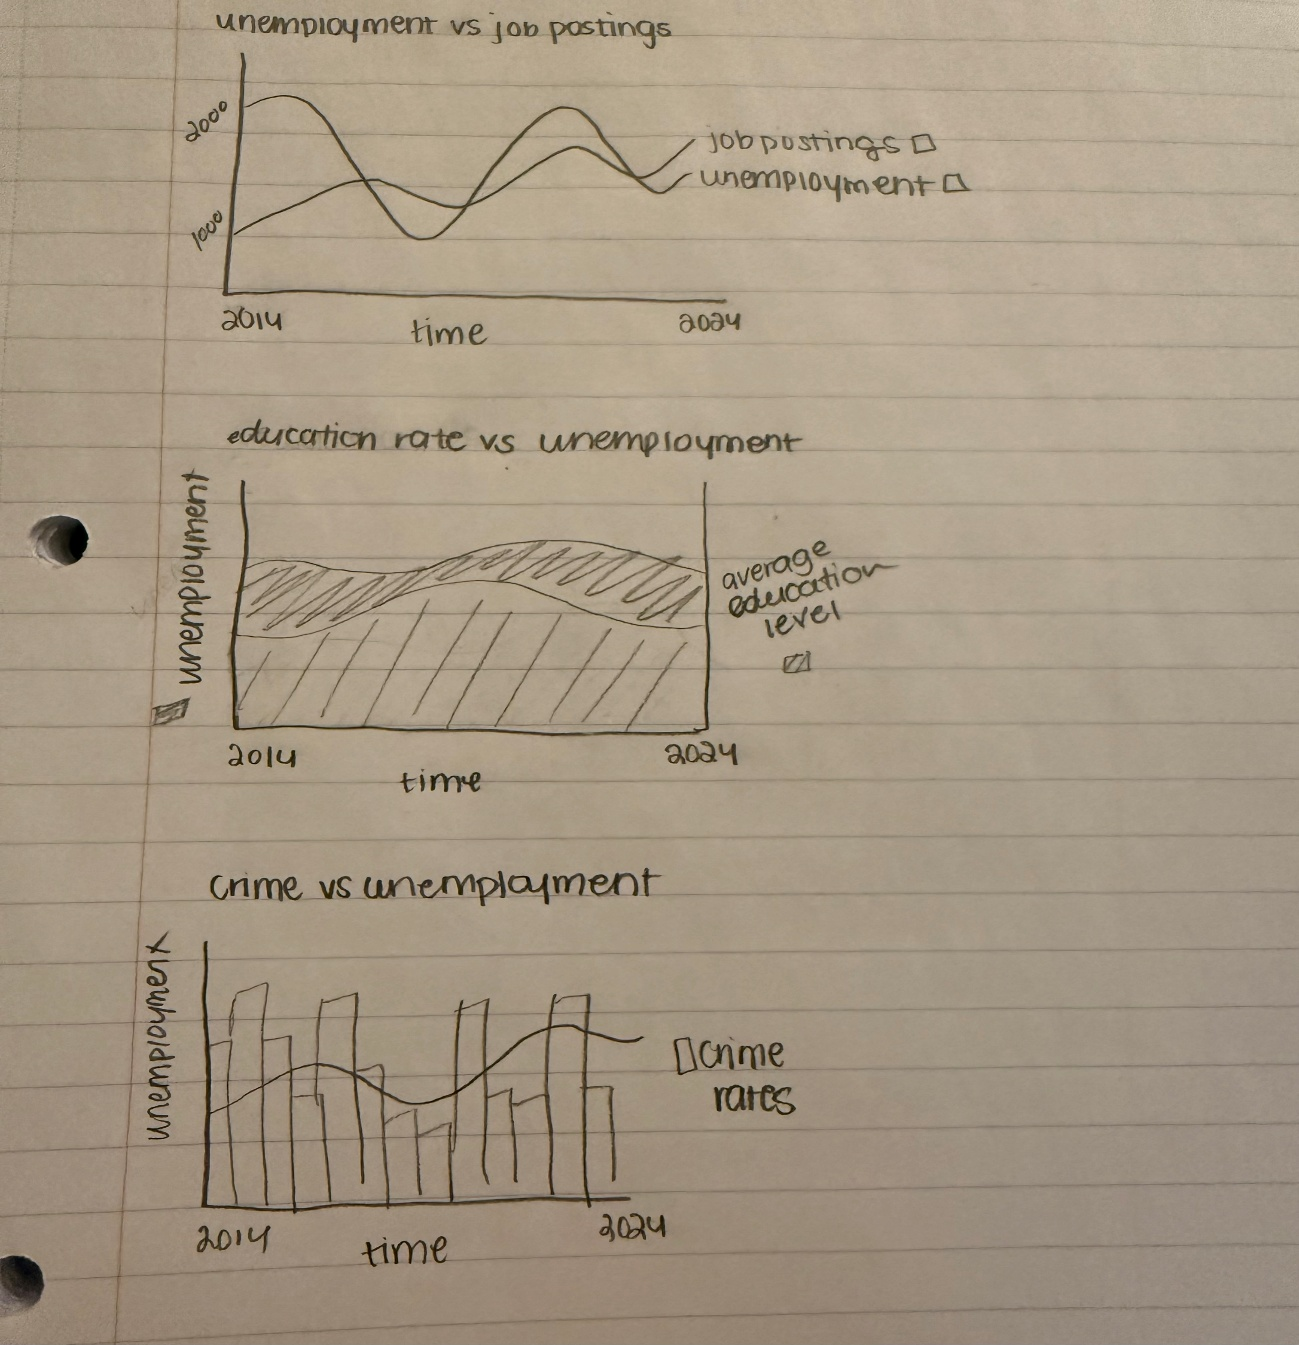 unemployment vs job postings
2000
job postings
unemployment
1000
2014
time
2024
education rate vs unemployment
unemployment
average
education
level
2014
time
2024
crime vs unemployment
unemployment
crime
rates
2014
time
2024